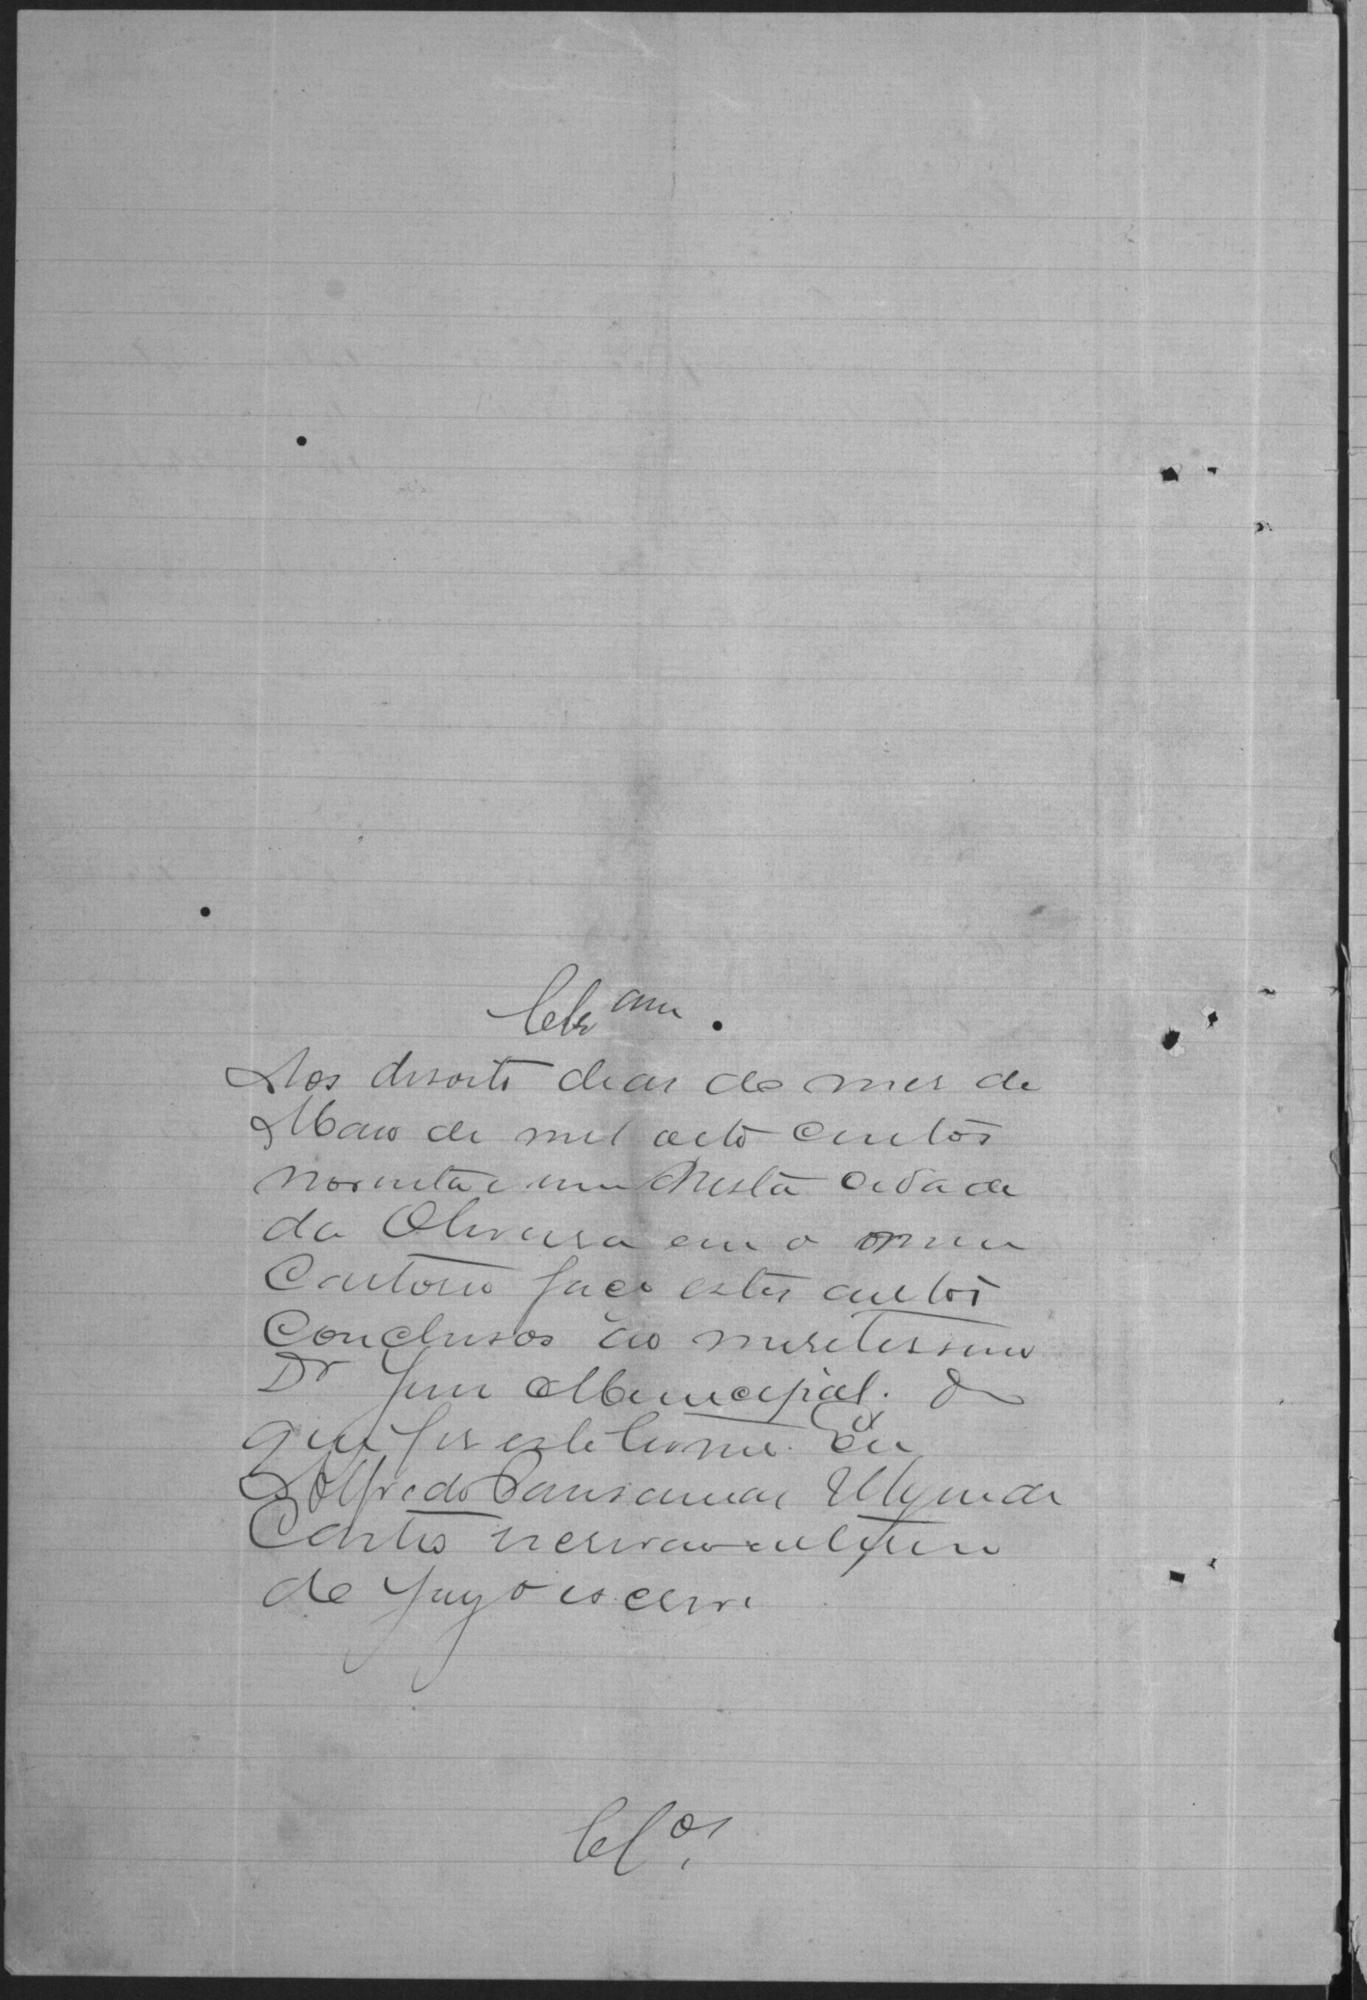 Clsam.
Aos desoito dias do mes de
Maio de mil oito centos
noventa e um Nesta cidade
da Oliveira em o meu
Cartorio faço estes autos
Conclusos ao meretissimo
Dr Juiz Municipal. Do
que fis este termo. Eu
Alfredo
Castro escrivão
de juizo escrevi
Clos.